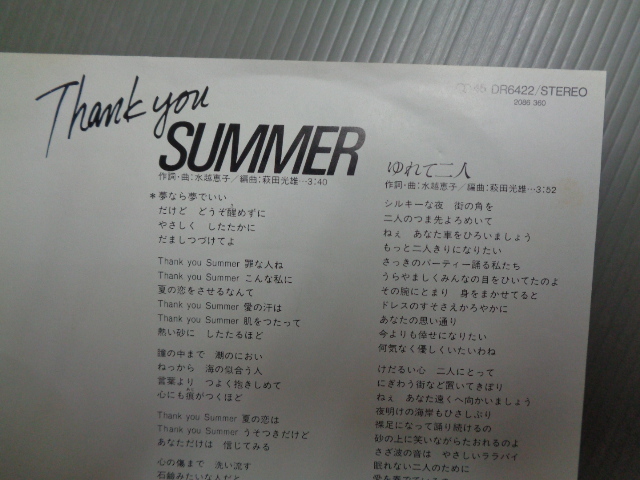 Thank you
SUMMER
作詞・曲:水越恵子/編曲:萩田光雄…3:40
*夢なら夢でいい
だけど どうぞ醒めずに
やさしく したたかに
だましつづけてよ
Thank you Summer 罪な人ね
Thank you Summer こんな私に
夏の恋をさせるなんて
Thank you Summer 愛の汗は
Thank you Summer 肌をつたって
熱い砂に したたるほど
瞳の中まで 潮のにおい
ねっから 海の似合う人
言葉より つよく抱きしめて
心にも痕がつくほど
Thank you Summer 夏の恋は
Thank you Summer うそつきだけど
あなただけは 信じてみる
心の傷まで 洗い流す
石鹸みたいな人だと
45 DR6422/STEREO
2086 360
ゆれて二人
作詞・曲:水越恵子/編曲:萩田光雄…3:52
シルキーな夜 街の角を
二人のつま先よろめいて
ねぇ あなた車をひろいましょう
もっと二人きりになりたい
さっきのパーティー踊る私たち
うらやましくみんなの目をひいてたのよ
その腕にとまり 身をまかせてると
ドレスのすそさえかろやかに
あなたの思い通り
今よりも倖せになりたい
何気なく優しくいたいわね
けだるい心 二人にとって
にぎわう街など置いてきぼり
ねぇ あなた遠くへ向かいましょう
夜明けの海岸もひさしぶり
裸足になって踊り続けるの
砂の上に笑いながらたおれるのよ
さざ波の音は やさしいララバイ
眠れない二人のために